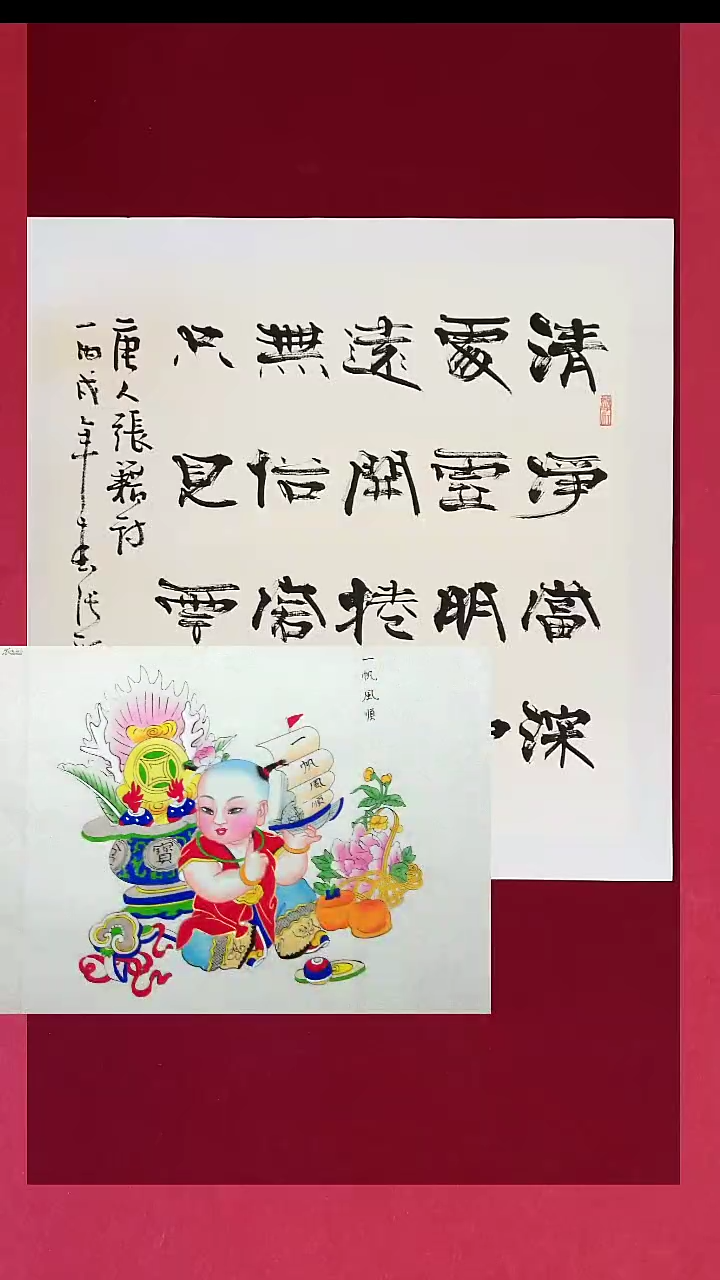 清淨當深
處虛明
遠開捲
無俗客
只見雲
唐人張籍詩
丙戌年
一帆風順
一帆風順
寶